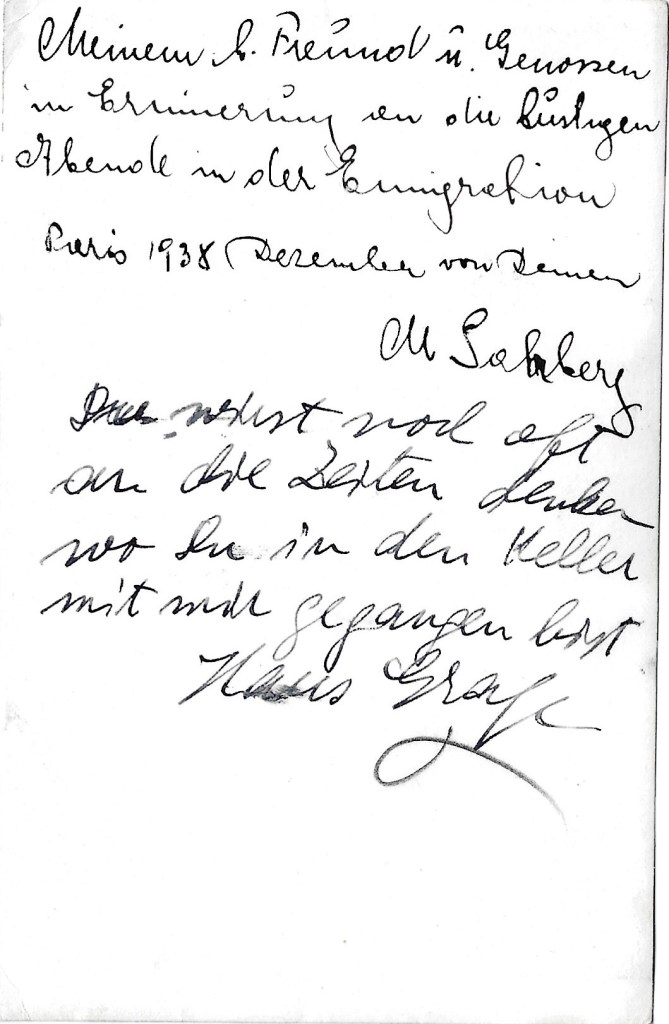 Meinem l. Freund u. Genossen
in Erinnerung an die lustigen
Abende in der Emigration
Paris 1938 Dezember von Deinem
M
Du wirst noch oft
an die Zeiten denken
wo Du in den Keller
mit mir gegangen bist
Hans Graf